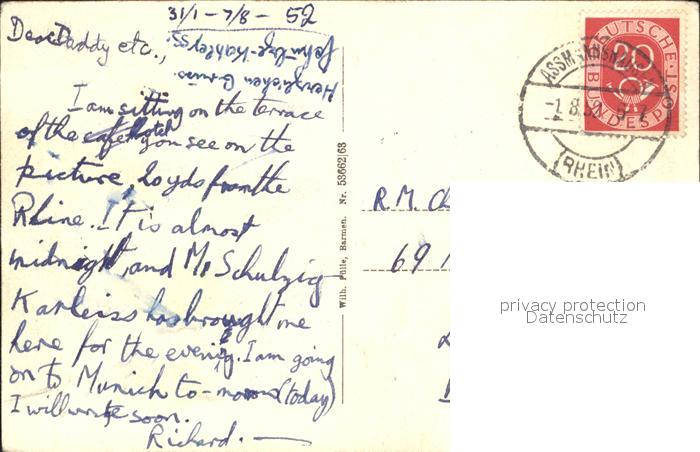 31/1 - 7/8 - 52
Dear Daddy etc.,
Herzlichen Gruss
I am sitting on the terrace
of the cafe hotel you see on the
picture, 20 yds from the
Rhine. It is almost
midnight, and Mr Schulzig
Karleiss has brought me
here for the evening. I am going
on to Munich to-morrow (today)
I will write soon.
Richard. —
Wilh. Fülle, Barmen. Nr. 53662/63
DEUTSCHE
BUNDESPOST
20
ASSMANNSHAUSEN
-1.8.52
(RHEIN)
R.M. Ch
69
privacy protection
Datenschutz